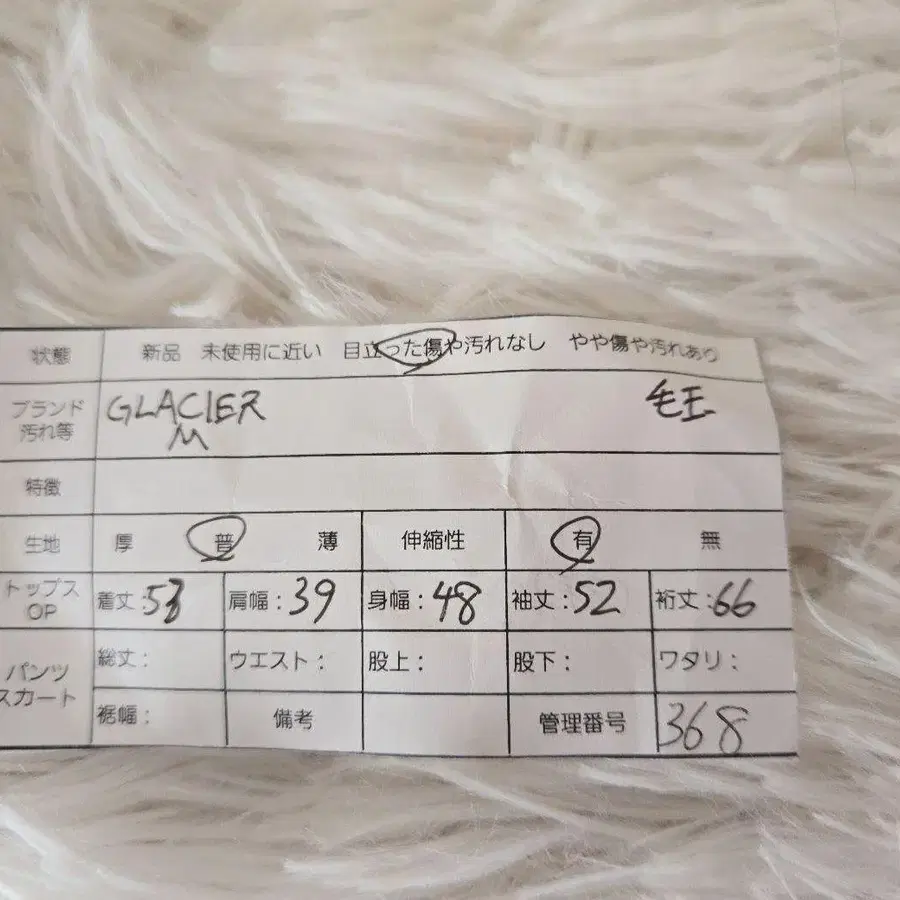 状態 新品 未使用に近い 目立った傷や汚れなし やや傷や汚れあり
ブランド 汚れ等 GLACIER M 毛玉
特徴
生地 厚 普 薄 伸縮性 有 無
トップス OP 着丈:53 肩幅:39 身幅:48 袖丈:52 裄丈:66
パンツ スカート 総丈: ウエスト: 股上: 股下: ワタリ:
裾幅: 備考 管理番号 368